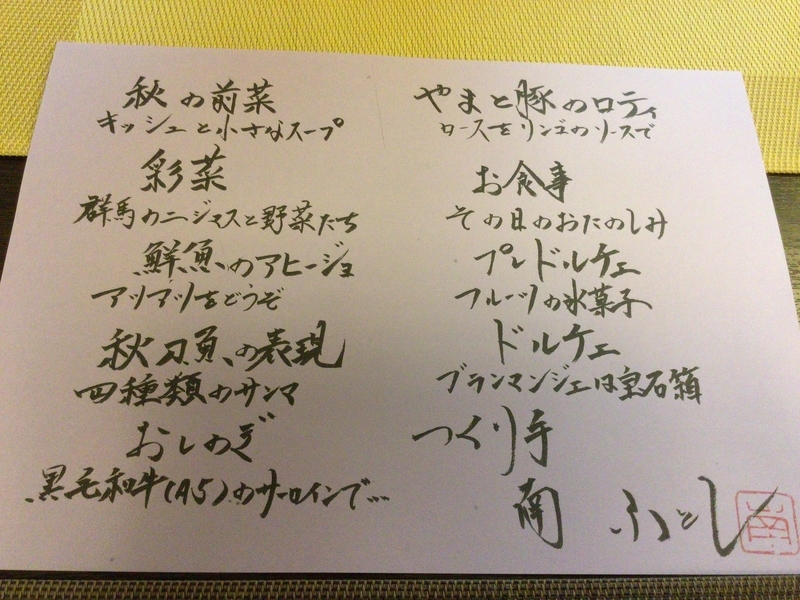 秋の前菜
キッシュと小さなスープ
彩菜
群馬のニジマスと野菜たち
鮮魚のアヒージョ
アツアツをどうぞ
秋刀魚の表現
四種類のサンマ
おしのぎ
黒毛和牛(A5)のサーロインで…
やまと豚のロティ
ロースをリンゴのソースで
お食事
その日のおたのしみ
プレドルチェ
フルーツの氷菓子
ドルチェ
ブランマンジェは宝石箱
つくり手
南 ふとし
南